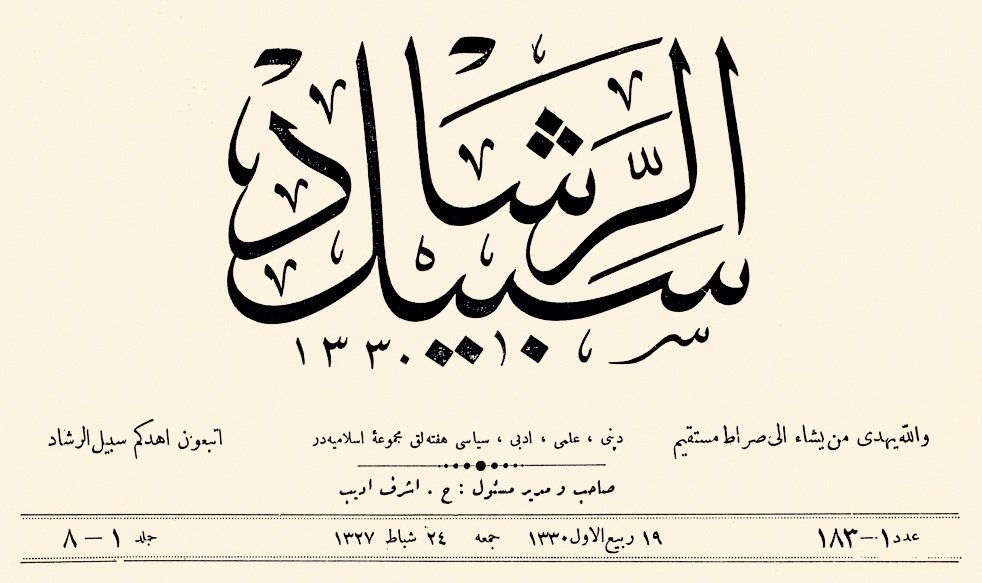 سبيل الرشاد
١٣٣٠
والله يهدى من يشاء الى صراط مستقيم
دينى ، علمى ، ادبى ، سياسى هفته‌لق مجموعهٔ اسلاميه‌در
اتبعون اهدكم سبيل الرشاد
صاحب و مدير مسئول : ح . اشرف اديب
عدد ١ — ١٨٣
١٩ ربيع الاول ١٣٣٠
جمعه
٢٤ شباط ١٣٢٧
جلد ١ — ٨